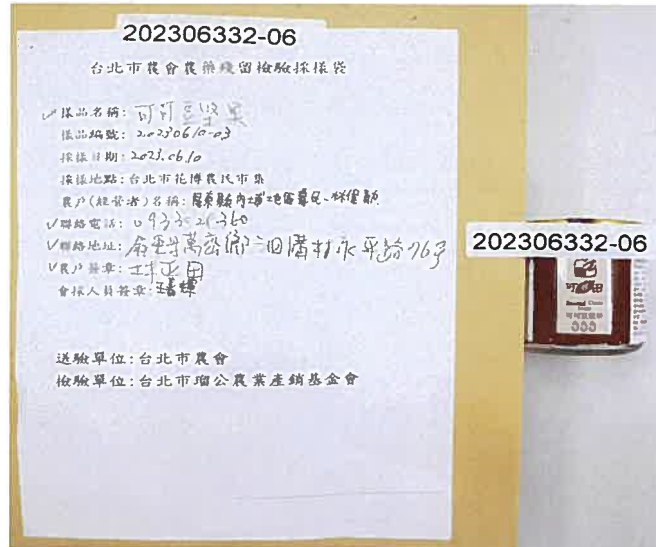 202306332-06
台北市農會農藥殘留檢驗採樣袋
✓樣品名稱: 可可豆堅果
樣品編號: 20230610-03
採樣日期: 2023.06.10
採樣地點: 台北市花博農民市集
農戶(經營者)名稱: 屏東縣內埔地區農民-林
✓聯絡電話:
✓聯絡地址: 萬巒鄉 永平路76号
✓農戶簽章:
會採人員簽章:
送驗單位: 台北市農會
檢驗單位: 台北市瑠公農業產銷基金會
202306332-06